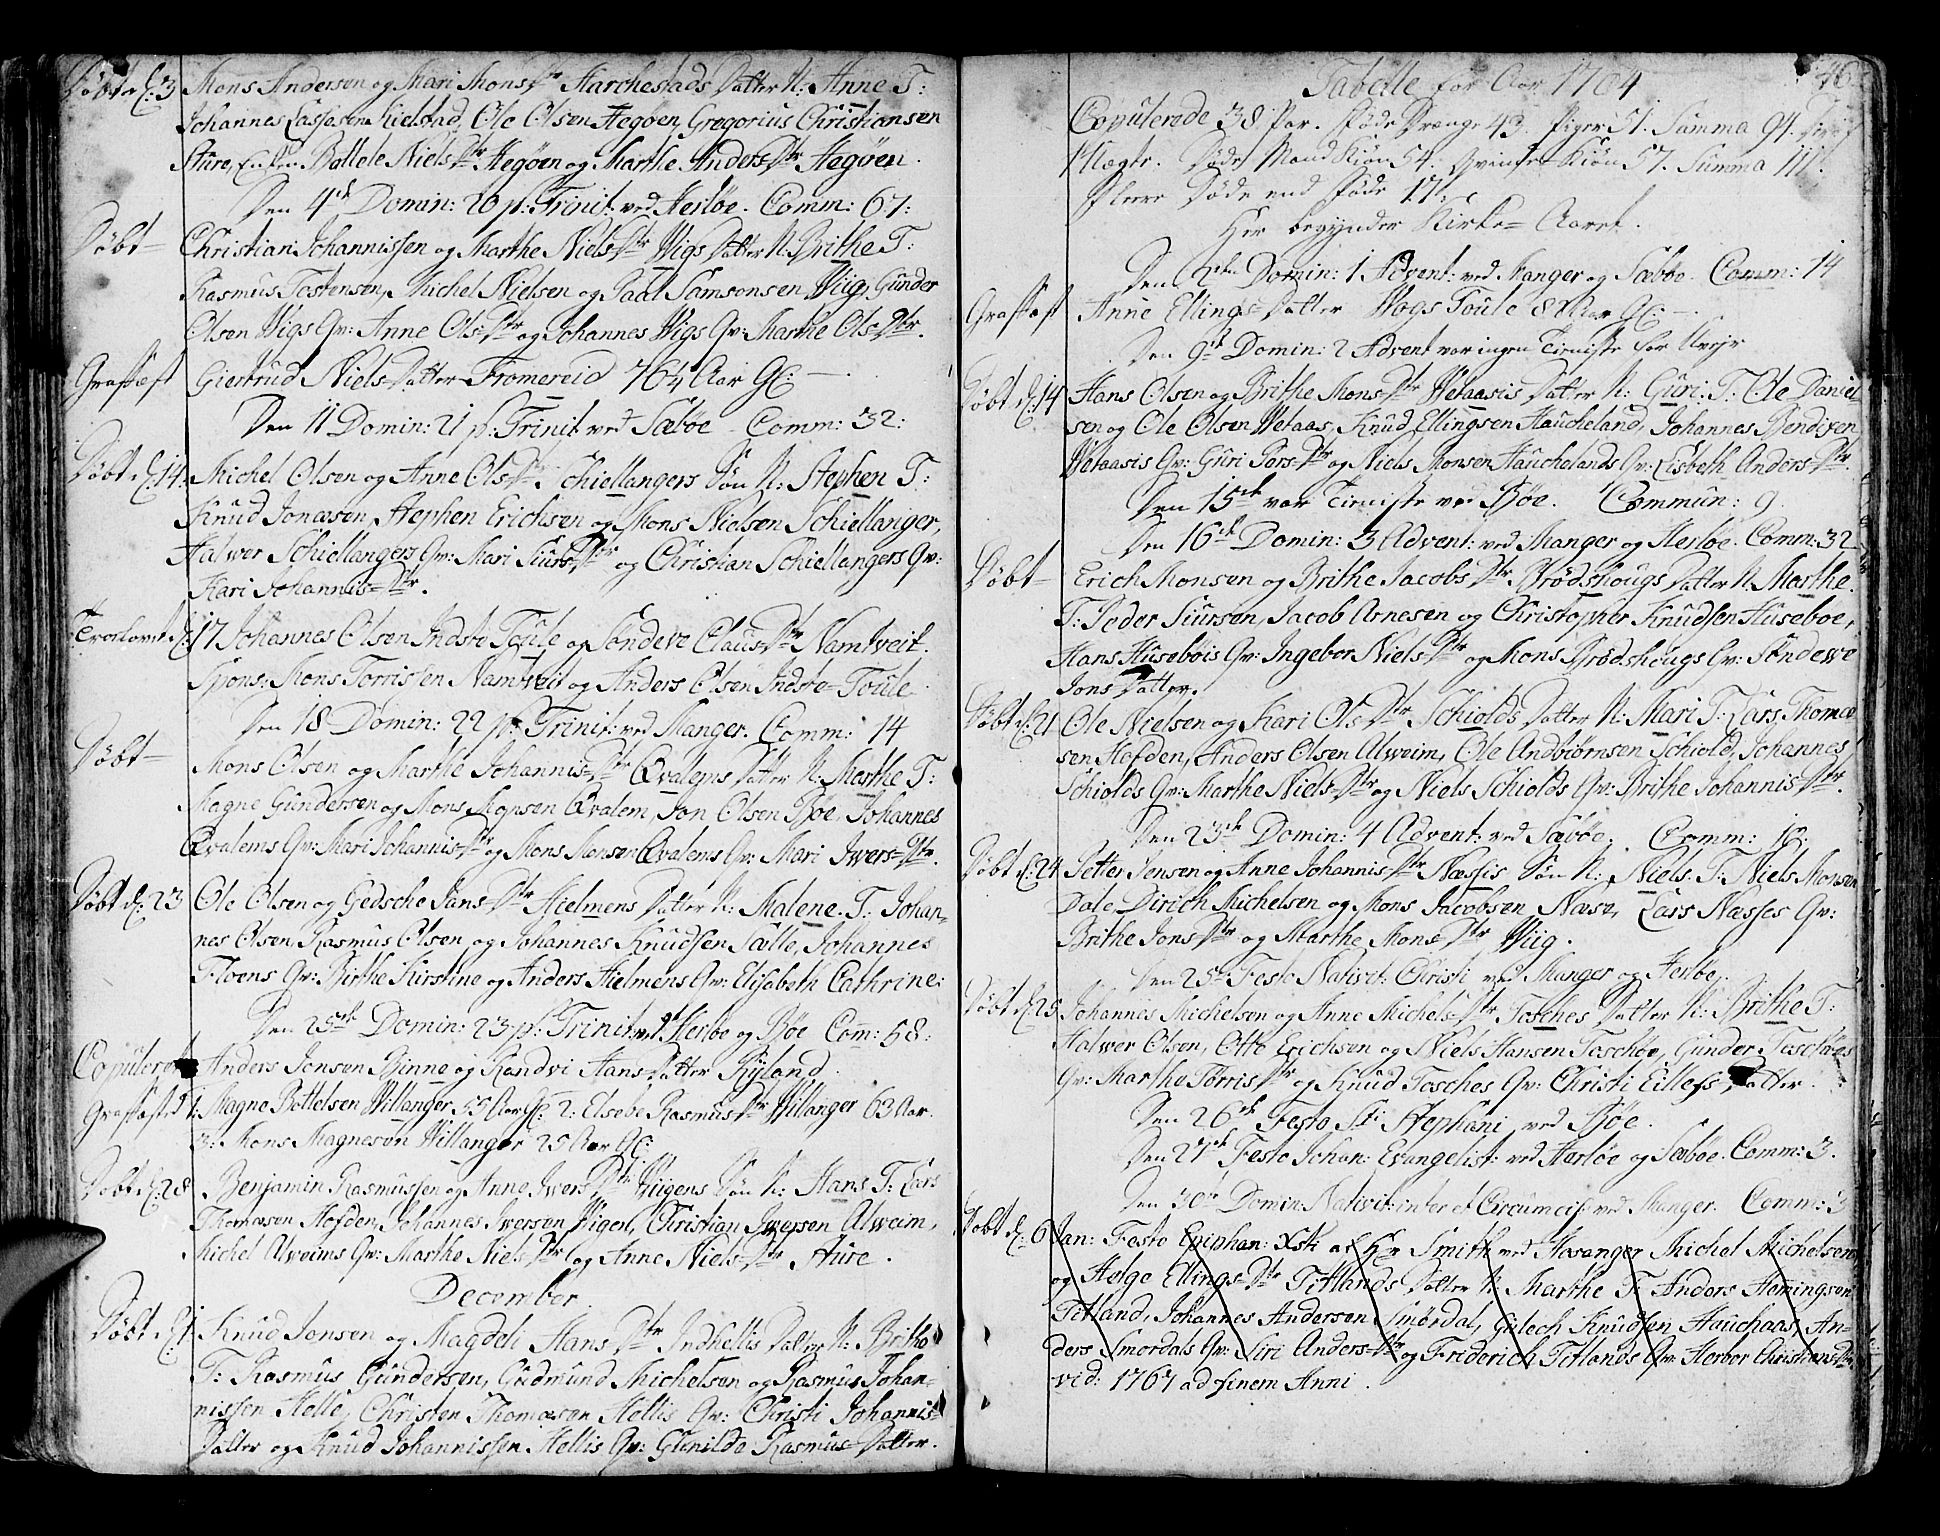 Døbt d: 3 Mons Andersen og Mari Mons Dtr Harchestads Datter N: Anne T:
Johannes Lassesen Kielstad, Ole Olsen Hegøen, Gregorius Christiansen
Aure, Enken Bottele Niels Dtr Hegøen og Marthe Anders Dtr Hegøen.
Den 4de Domin: 20 p: Trinit: ved Herløe. Comm: 67:
Døbt Christian Johannissen og Marthe Niels Dtr Wigs Datter N: Brithe T:
Rasmus Tostensen, Michel Nielsen og Paal Samsonsen Wiig, Gunder
Olsen Wigs Qv: Anne Ols Dtr og Johannes Wigs Qv: Marthe Ols Dtr.
Graffæst Giertrud Niels Datter Fromereid 76½ Aar G:
Den 11 Domin: 21 p: Trinit: ved Sæbøe. Comm: 32:
Døbt d: 14 Michel Olsen og Anne Ols Dtr Schiellangers Søn N: Stephen T:
Knud Jonæsen, Stephen Erichsen og Mons Nielsen Schiellanger,
Halwer Schiellangers Qv: Mari Siurs Dtr og Christian Schiellangers Qv:
Kari Johannis Dtr.
Trolovet d: 17 Johannes Olsen Indste Toule og Søndeve Claus Dtr Namtveit.
Spons: Mons Torrissen Namtveit og Anders Olsen Indste Toule.
Den 18 Domin: 22 p: Trinit: ved Manger. Comm: 14
Døbt Mons Olsen og Marthe Johannis Dtr Qvalems Datter N: Marthe T:
Magne Gundersen og Mons Monsen Qvalem, Jon Olsen Bøe, Johannes
Qvalems Qv: Mari Johannis Dtr og Mons Monsen Qvalems Qv: Mari Iwers Dtr.
Døbt d: 23 Ole Olsen og Gedsche Jans Dtr Hielmens Datter N: Malene. T: Johan-
nes Olsen, Rasmus Olsen og Johannes Knudsen Sælle, Johannes
Floens Qv: Birthe Kirstine og Anders Hielmens Qv: Elisabeth Cathrine:
Den 25de Domin: 23 p: Trinit: ved Herløe og Bøe Com: 58:
Copuleret Anders Jonsen Binne og Randvi Hans Datter Ryland.
Graffæsted 1: Magne Bottelsen Willanger 55 Aar G: 2: Elsebe Rasmus Dtr Willanger 63 Aar.
3: Mons Magnesøn Willanger 25 Aar G:
Døbt d: 28 Benjamin Rasmussen og Anne Iwers Dtr Wigens Søn N: Hans T: Lars
Thomæsen Hofden, Johannes Iwersen Wigen, Christian Iwersen Alweim,
Michel Alweims Qv: Marthe Niels Dtr og Anne Niels Dtr Aure.
December
Døbt d: 1 Knud Jonsen og Magdeli Hans Dtr Indhellis Datter N: Brithe
T: Rasmus Gundersen, Gudmund Michelsen og Rasmus Johan-
nissen Helle, Christen Thomæsen Hellis Qv: Christi Johannis
Datter og Knud Johannissen Hellis Qv: Glenilde Rasmus Datter.
46.
Tabelle for Aar 1764
Copulerede 38 Par. Føde Drenge 43. Piger 51. Summa 94.
1 Uægte. Døde Mand Kiøn 54. Qvinde Kiøn 57. Summa 111.
Flere Døde end Føde 17.
Her begynder Kirke Aaret.
Den 2den Domin: 1 Advent: ved Manger og Sæbøe. Comm: 14
Graffæst Anne Ellings Datter Wogs Toule 8 Aar G:
Den 9de Domin: 2 Advent var ingen Tieniste for Uveir
Døbt d: 14 Hans Olsen og Brithe Mons Dtr Wetaasis Datter N: Guri. T: Ole Daniel-
sen og Ole Olsen Wetaas, Knud Ellingsen Haucheland, Johannes Bendixen
Wetaasis Qv: Guri Pers Dtr og Niels Monsen Hauchelands Qv: Lisbeth Anders Dtr.
Den 15de var Tieniste ved Bøe. Commun: 9.
Den 16de Domin: 3 Advent: ved Manger og Herløe. Comm: 32
Døbt Erich Monsen og Brithe Jacobs Dtr Brødshougs Datter N: Marthe.
T: Peder Siursen, Jacob Arnesen og Christopher Knudsen Huseboe,
Hans Husebøis Qv: Ingebor Niels Dtr og Mons Brødshougs Qv: Søndewe
Jons Datter.
Døbt d: 21 Ole Nielsen og Kari Ols Dtr Schiolds Datter N: Mari T: Lars Thomæ-
sen Hofden, Anders Olsen Alweim, Ole Andbiørnsen Schiold, Johannes
Schiolds Qv: Marthe Niels Dtr og Niels Schiolds Qv: Brithe Johannis Dtr.
Den 23de Domin: 4 Advent: ved Sæbøe. Comm: 16:
Døbt d: 24 Petter Jensen og Anne Johannis Dtr Næssis Søn N: Niels. T: Niels Monsen
Dale, Dirich Michelsen og Mons Jacobsen Næse, Lars Næsses Qv:
Brithe Jons Dtr og Marthe Mons Dtr Wiig.
Den 25de Festo Nativit: Christi ved Manger og Herløe.
Døbt d: 25 Johannes Michelsen og Anne Michels Dtr Tosches Datter N: Brithe T:
Halwer Olsen, Otto Erichsen og Niels Hansen Toschøe, Gunder Toschøes
Qv: Marthe Torris Dtr og Knud Tosches Qv: Christi Eillefs Datter.
Den 26de Festo Sti Stephani ved Bøe.
Den 27de Festo Johan: Evangelist: ved Herløe og Sæbøe. Comm: 3.
Den 30te Domin: Nativit: inter et Circumcis: ved Manger. Comm: 3
Døbt d: 6 Jan: Festo Epiphan: Xsti af Hr Smith ved Hosanger Michel Michelsens
og Helge Ellings Dtr Titlands Datter N: Marthe T: Anders Hemingsen
Titland, Johannes Andersen Smørdal, Gulech Knudsen Hauchaas, An-
ders Smordals Qv: Siri Anders Dtr og Friderich Titlands Qv: Herbor Christians Dtr
vid: 1767 ad finem Anni.